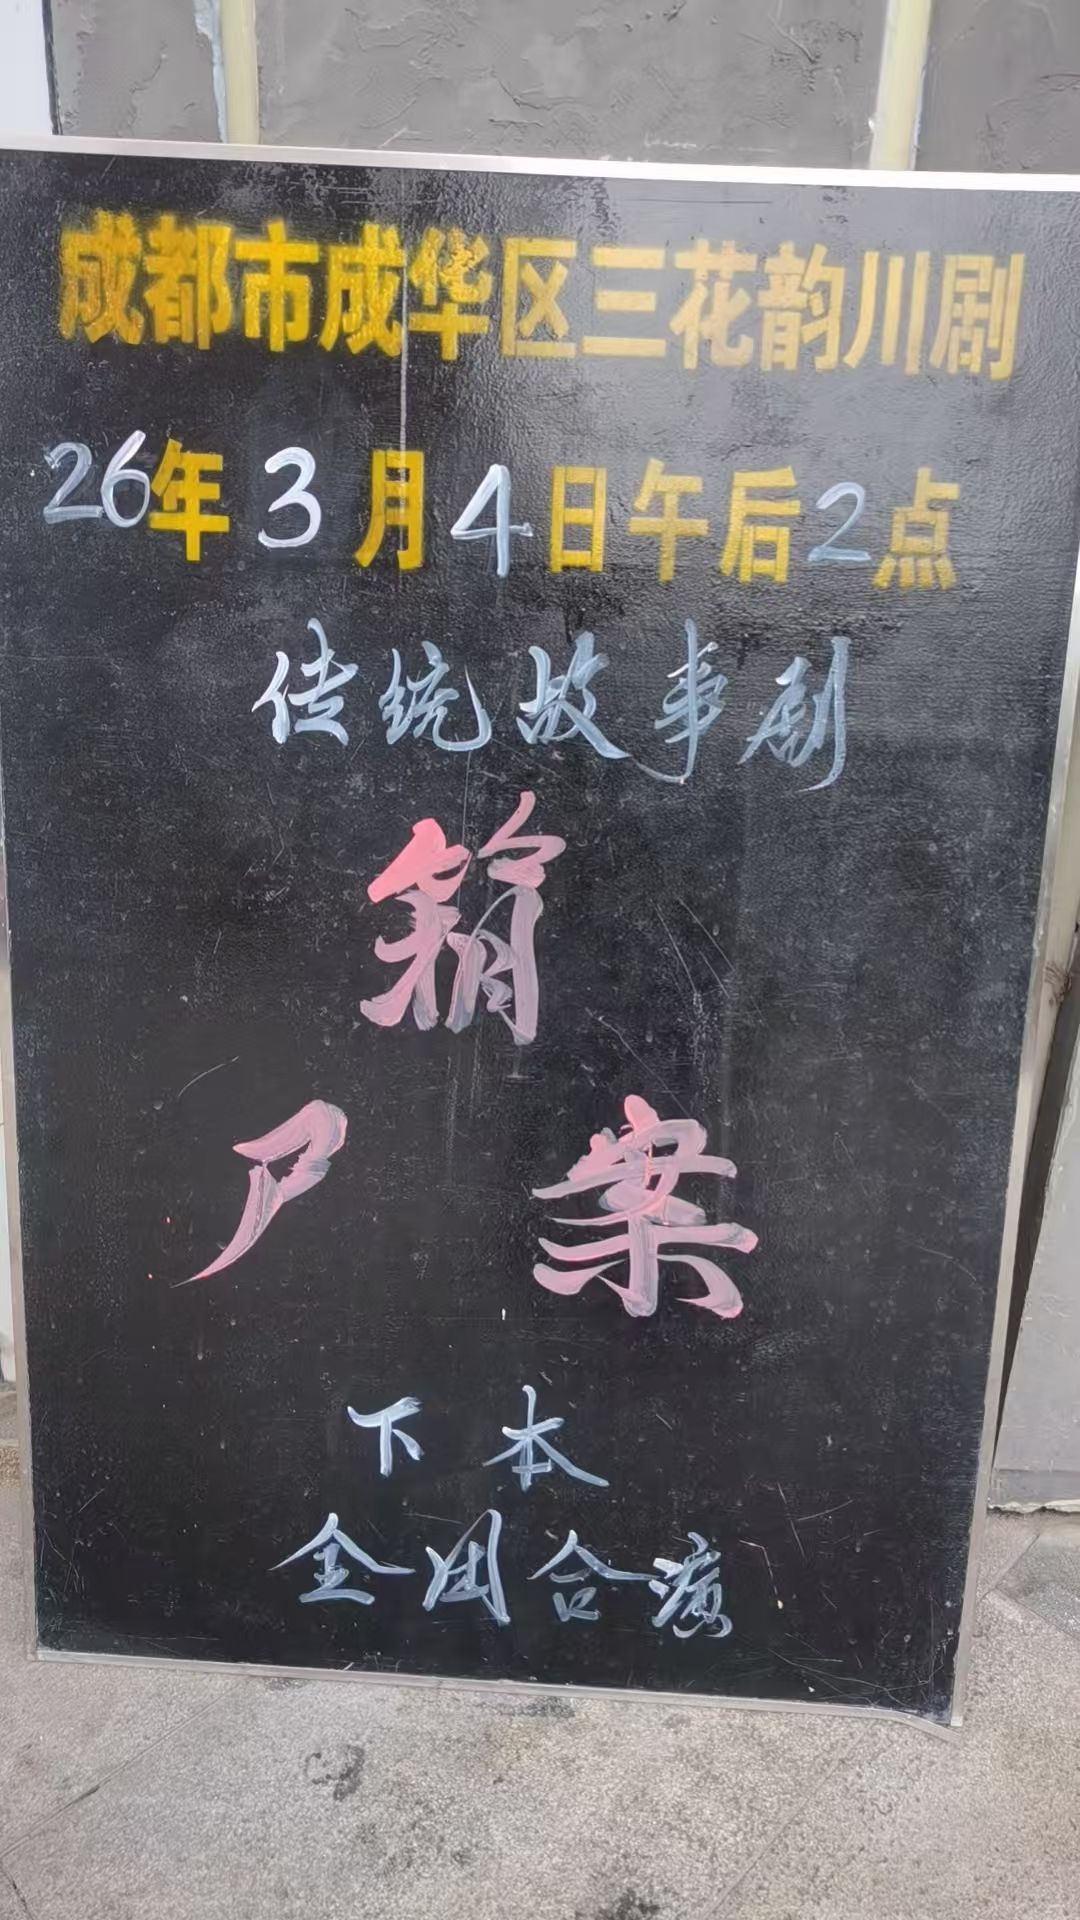 成都市成华区三花韵川剧
26年3月4日午后2点
传统故事剧
箱
尸 案
下本
全团合演